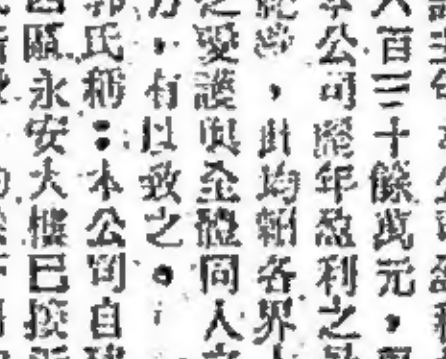 百三十餘萬元，
公司歷年盈利之
，此均賴各界
愛護與全體同人
，有以致之。
氏稱：本公司自
區永安大樓已